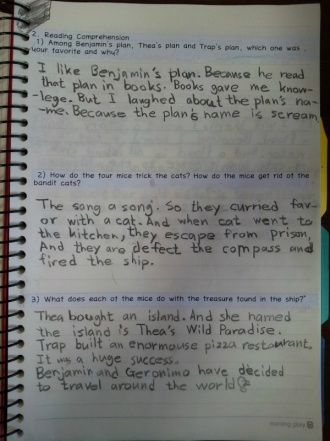 2. Reading Comprehension
1) Among Benjamin's plan, Thea's plan and Trap's plan, which one was
your favorite and why?
I like Benjamin's plan. Because he read
that plan in books. Books gave me know-
-lege. But I laughed about the plan's na-
-me. Because the plan's name is scream
2) How do the four mice trick the cats? How do the mice get rid of the
bandit cats?
The song a song. So they curried fav-
or with a cat. And when cat went to
the kitchen, they escape from prison,
And they are defect the compass and
fired the ship.
3) What does each of the mice do with the treasure found in the ship?
Thea bought an island. And she named
the island is Thea's Wild Paradise.
Trap built an enormouse pizza restaurant.
It was a huge success.
Benjamin and Geronimo have decided
to travel around the world